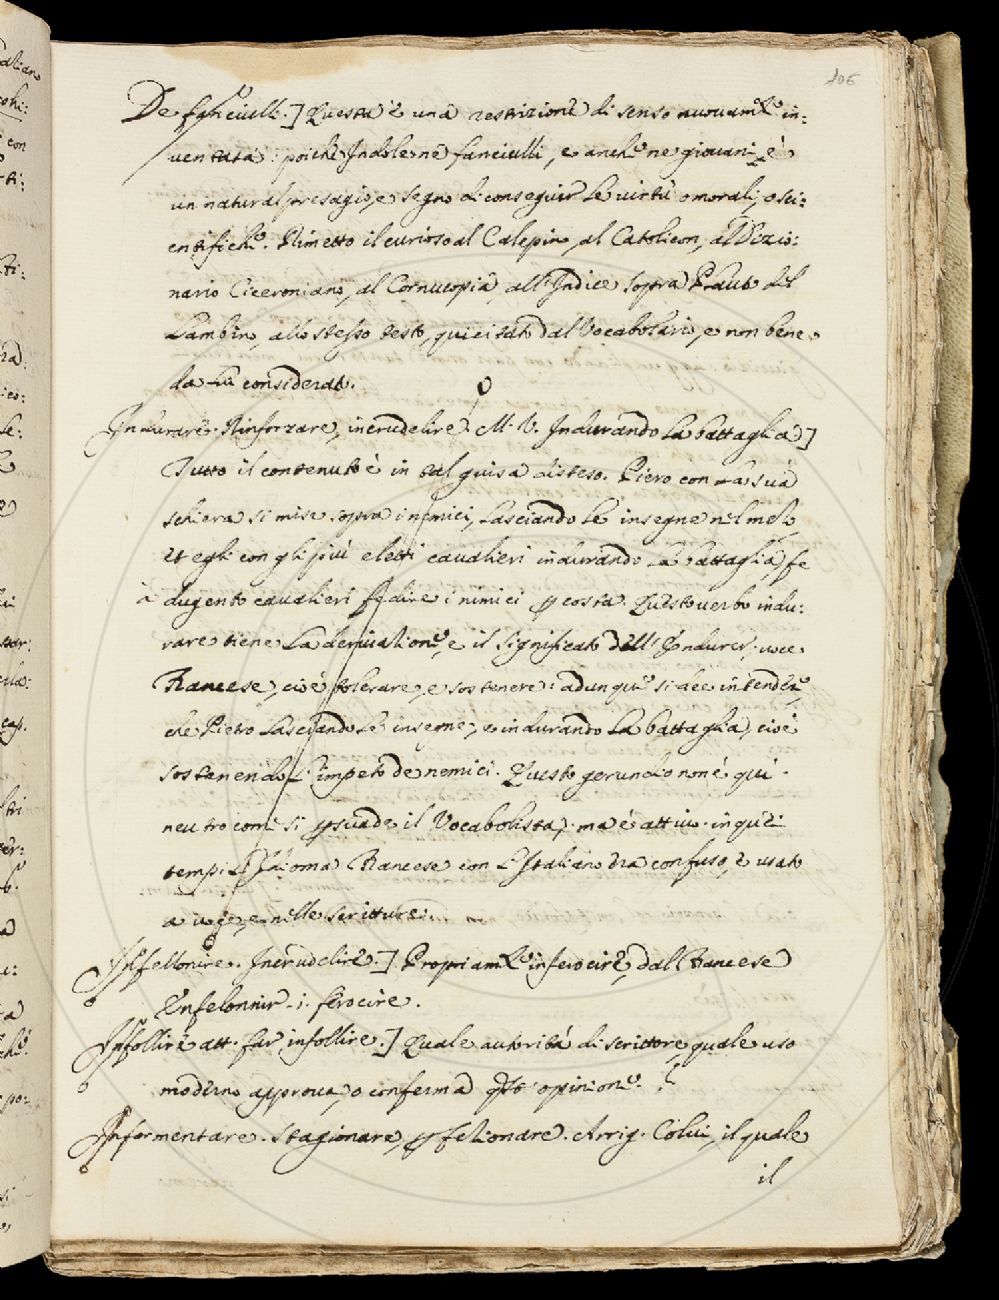 106
De fanciulli.] Questa è una restrizione di senso nuouam.te in:
uentata: poiche Indole ne fanciulli, e anche ne giouani è
un natural presagio, e segno di conseguir le uirtù o morali, o sci:
entifiche. Rimetto il curioso al Calepino, al Catolicon, al Dizio:
nario Ciceroniano, al Cornucopia, all'Indice sopra Plauto del
Lambino, allo stesso testo, qui citato dal Vocabolario, e non bene
da lui considerato.
Indurare. Rinforzare, incrudelire. M. V. Indurando la battaglia]
Tutto il contenuto è in tal guisa disteso. Piero con la sua
schiera si mise sopra i nimici, lasciando le insegne nel mezo
et egli con gli più eletti caualieri indurando la battaglia, fe
à dugento caualieri fedire i nimici p costa. Questo uerbo indu:
rare tiene la deriuatione, e il significato dell'Endurer uoce
Francese, cioè tolerare, e sostenere: adunque si dee intendere,
che Pietro lasciando le insegne, e indurando la battaglia, cioè
sostenendo l'impeto de nemici. Questo gerundio non è qui
neutro come si psuade il Vocabolista, ma è attiuo. in quei
tempi l'Idioma Francese con l'Italiano era confuso, e usato
a uoce, e nelle scritture.
Infellonire. Incrudelire.] Propriam.te inferocire, dal Francese
Enfelonnir .i. ferocire.
Infollire att. far infollire.] Quale autorità di scrittore, quale uso
moderno approua, o conferma qsto opinione?
Informentare. Stagionare, pfezionare. Arrig. Colui, il quale
il